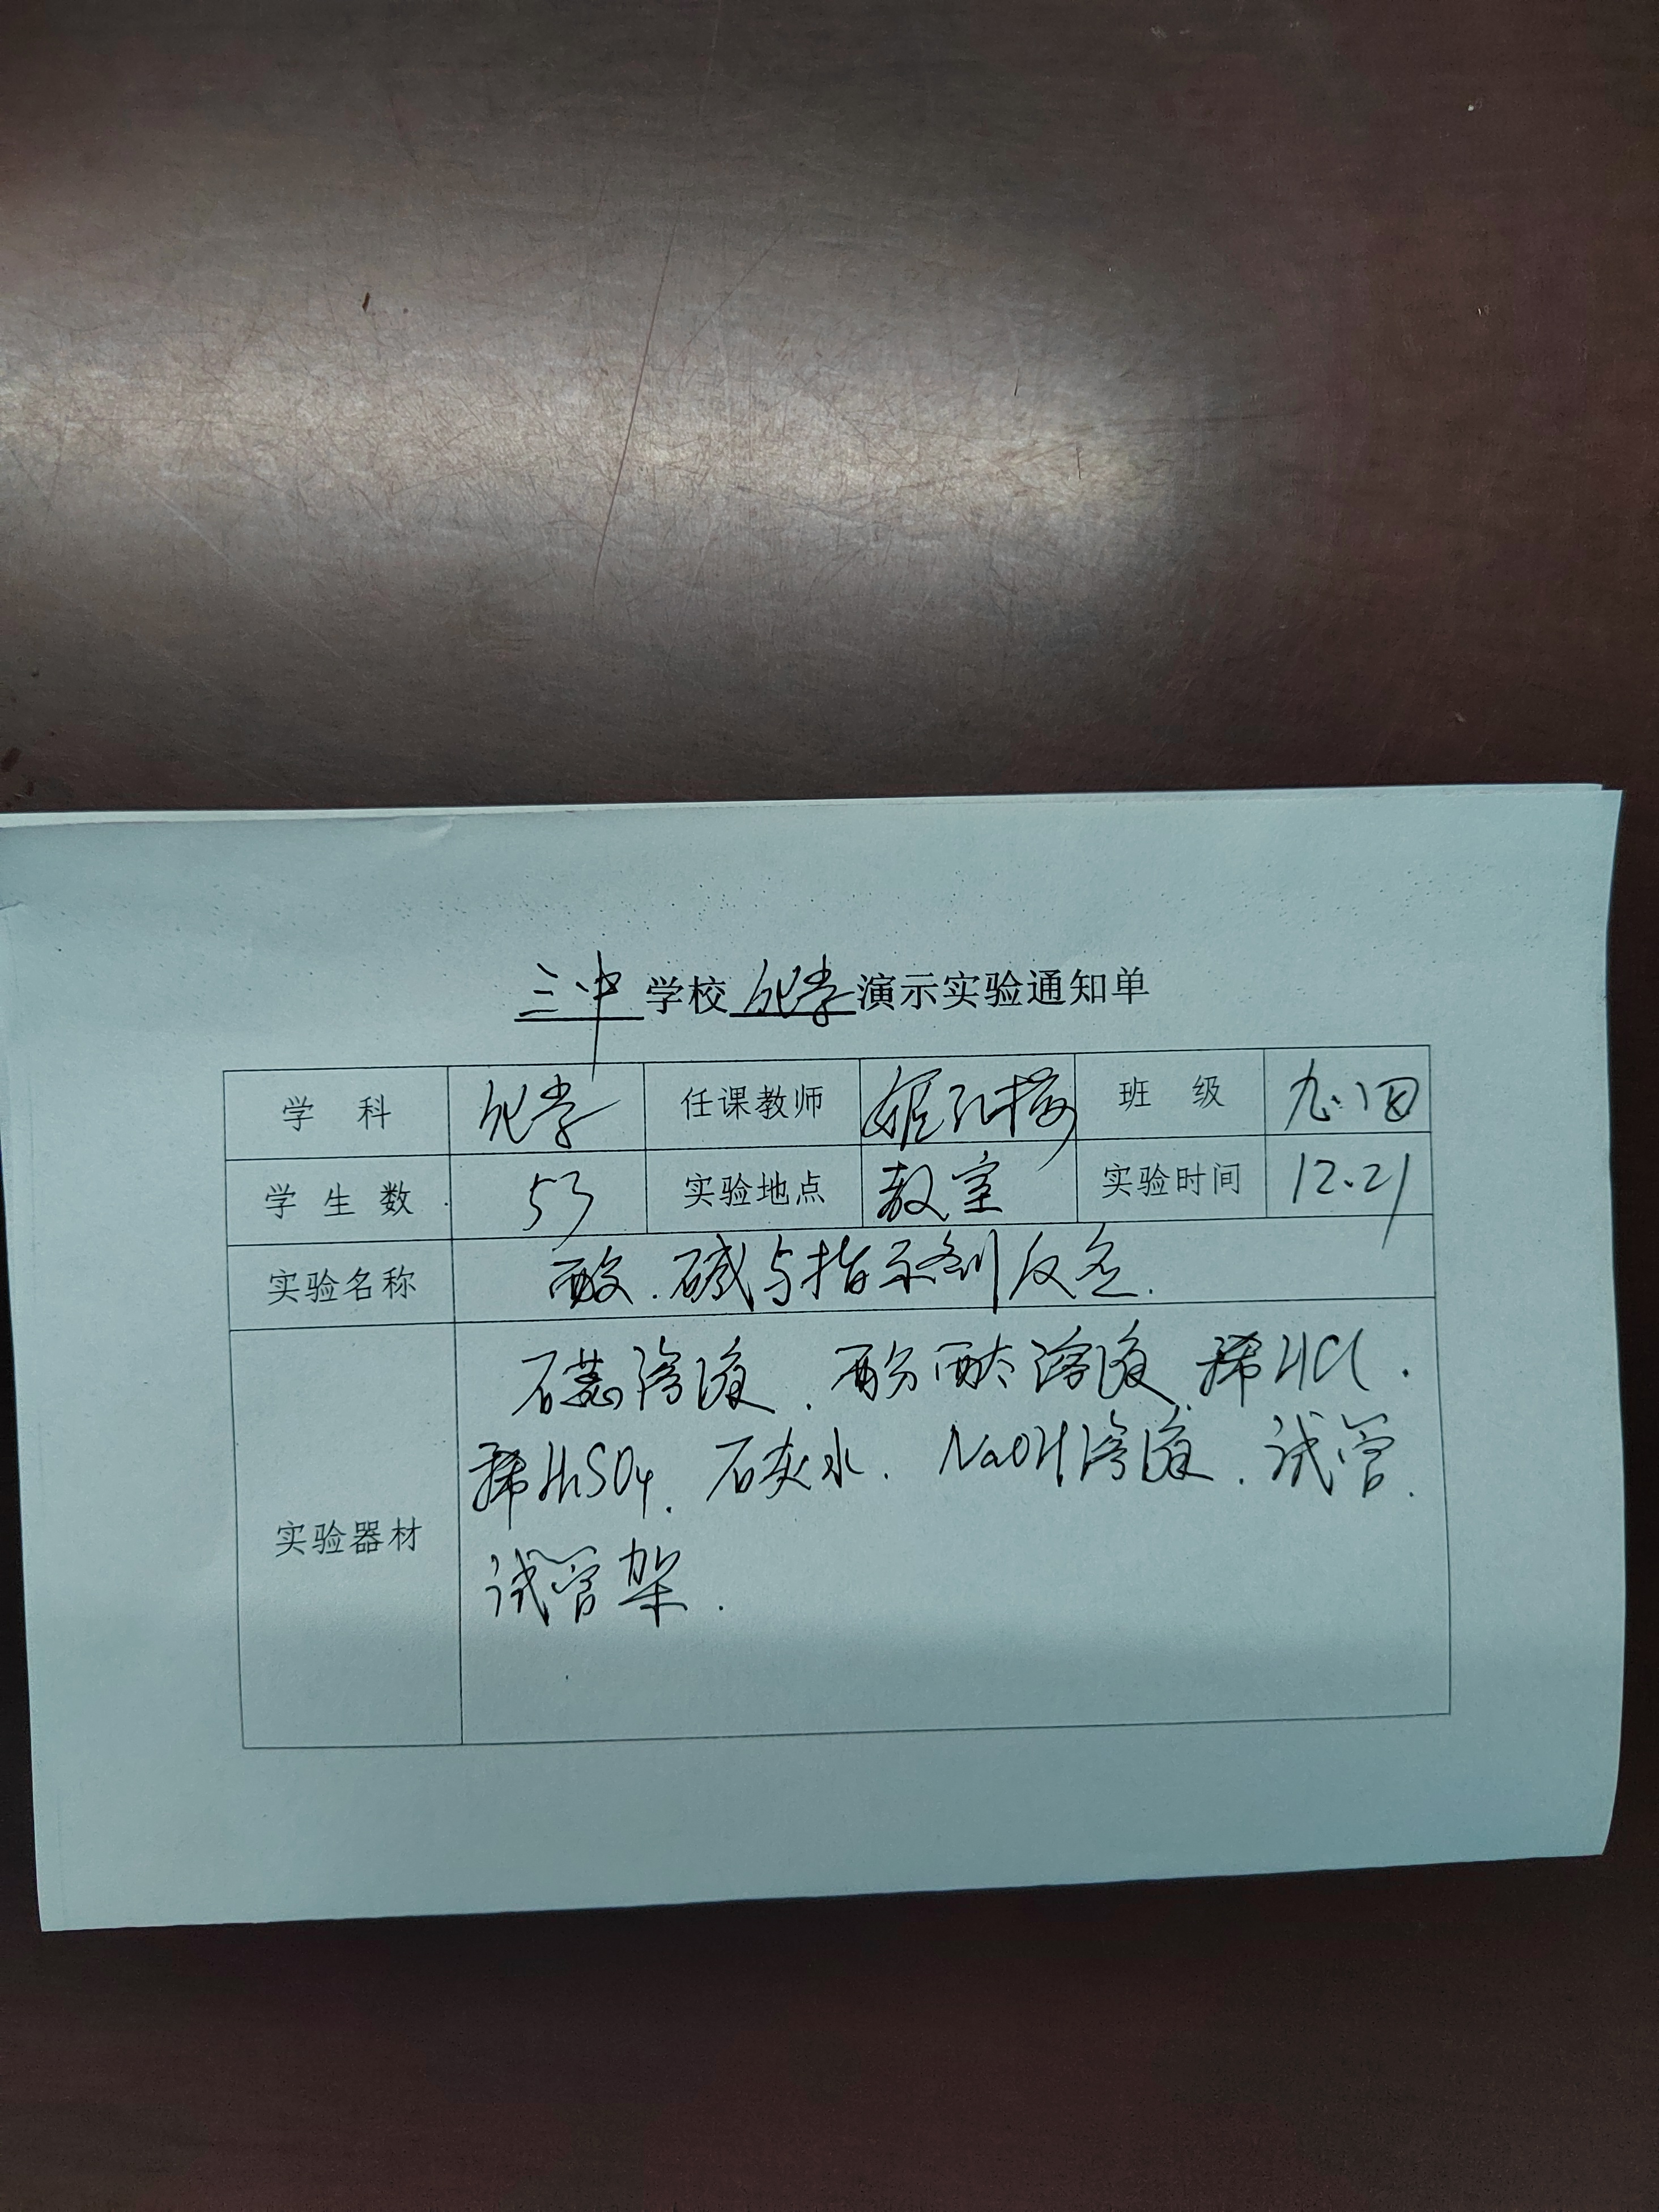 三中学校化学演示实验通知单
学 科 化学 任课教师 姬孔梅 班 级 九.四
学 生 数 53 实验地点 教室 实验时间 12.21
实验名称 酸、碱与指示剂反应.
实验器材
石蕊溶液、酚酞溶液、稀HCl、
稀H₂SO₄、石灰水、NaOH溶液、试管、
试管架.